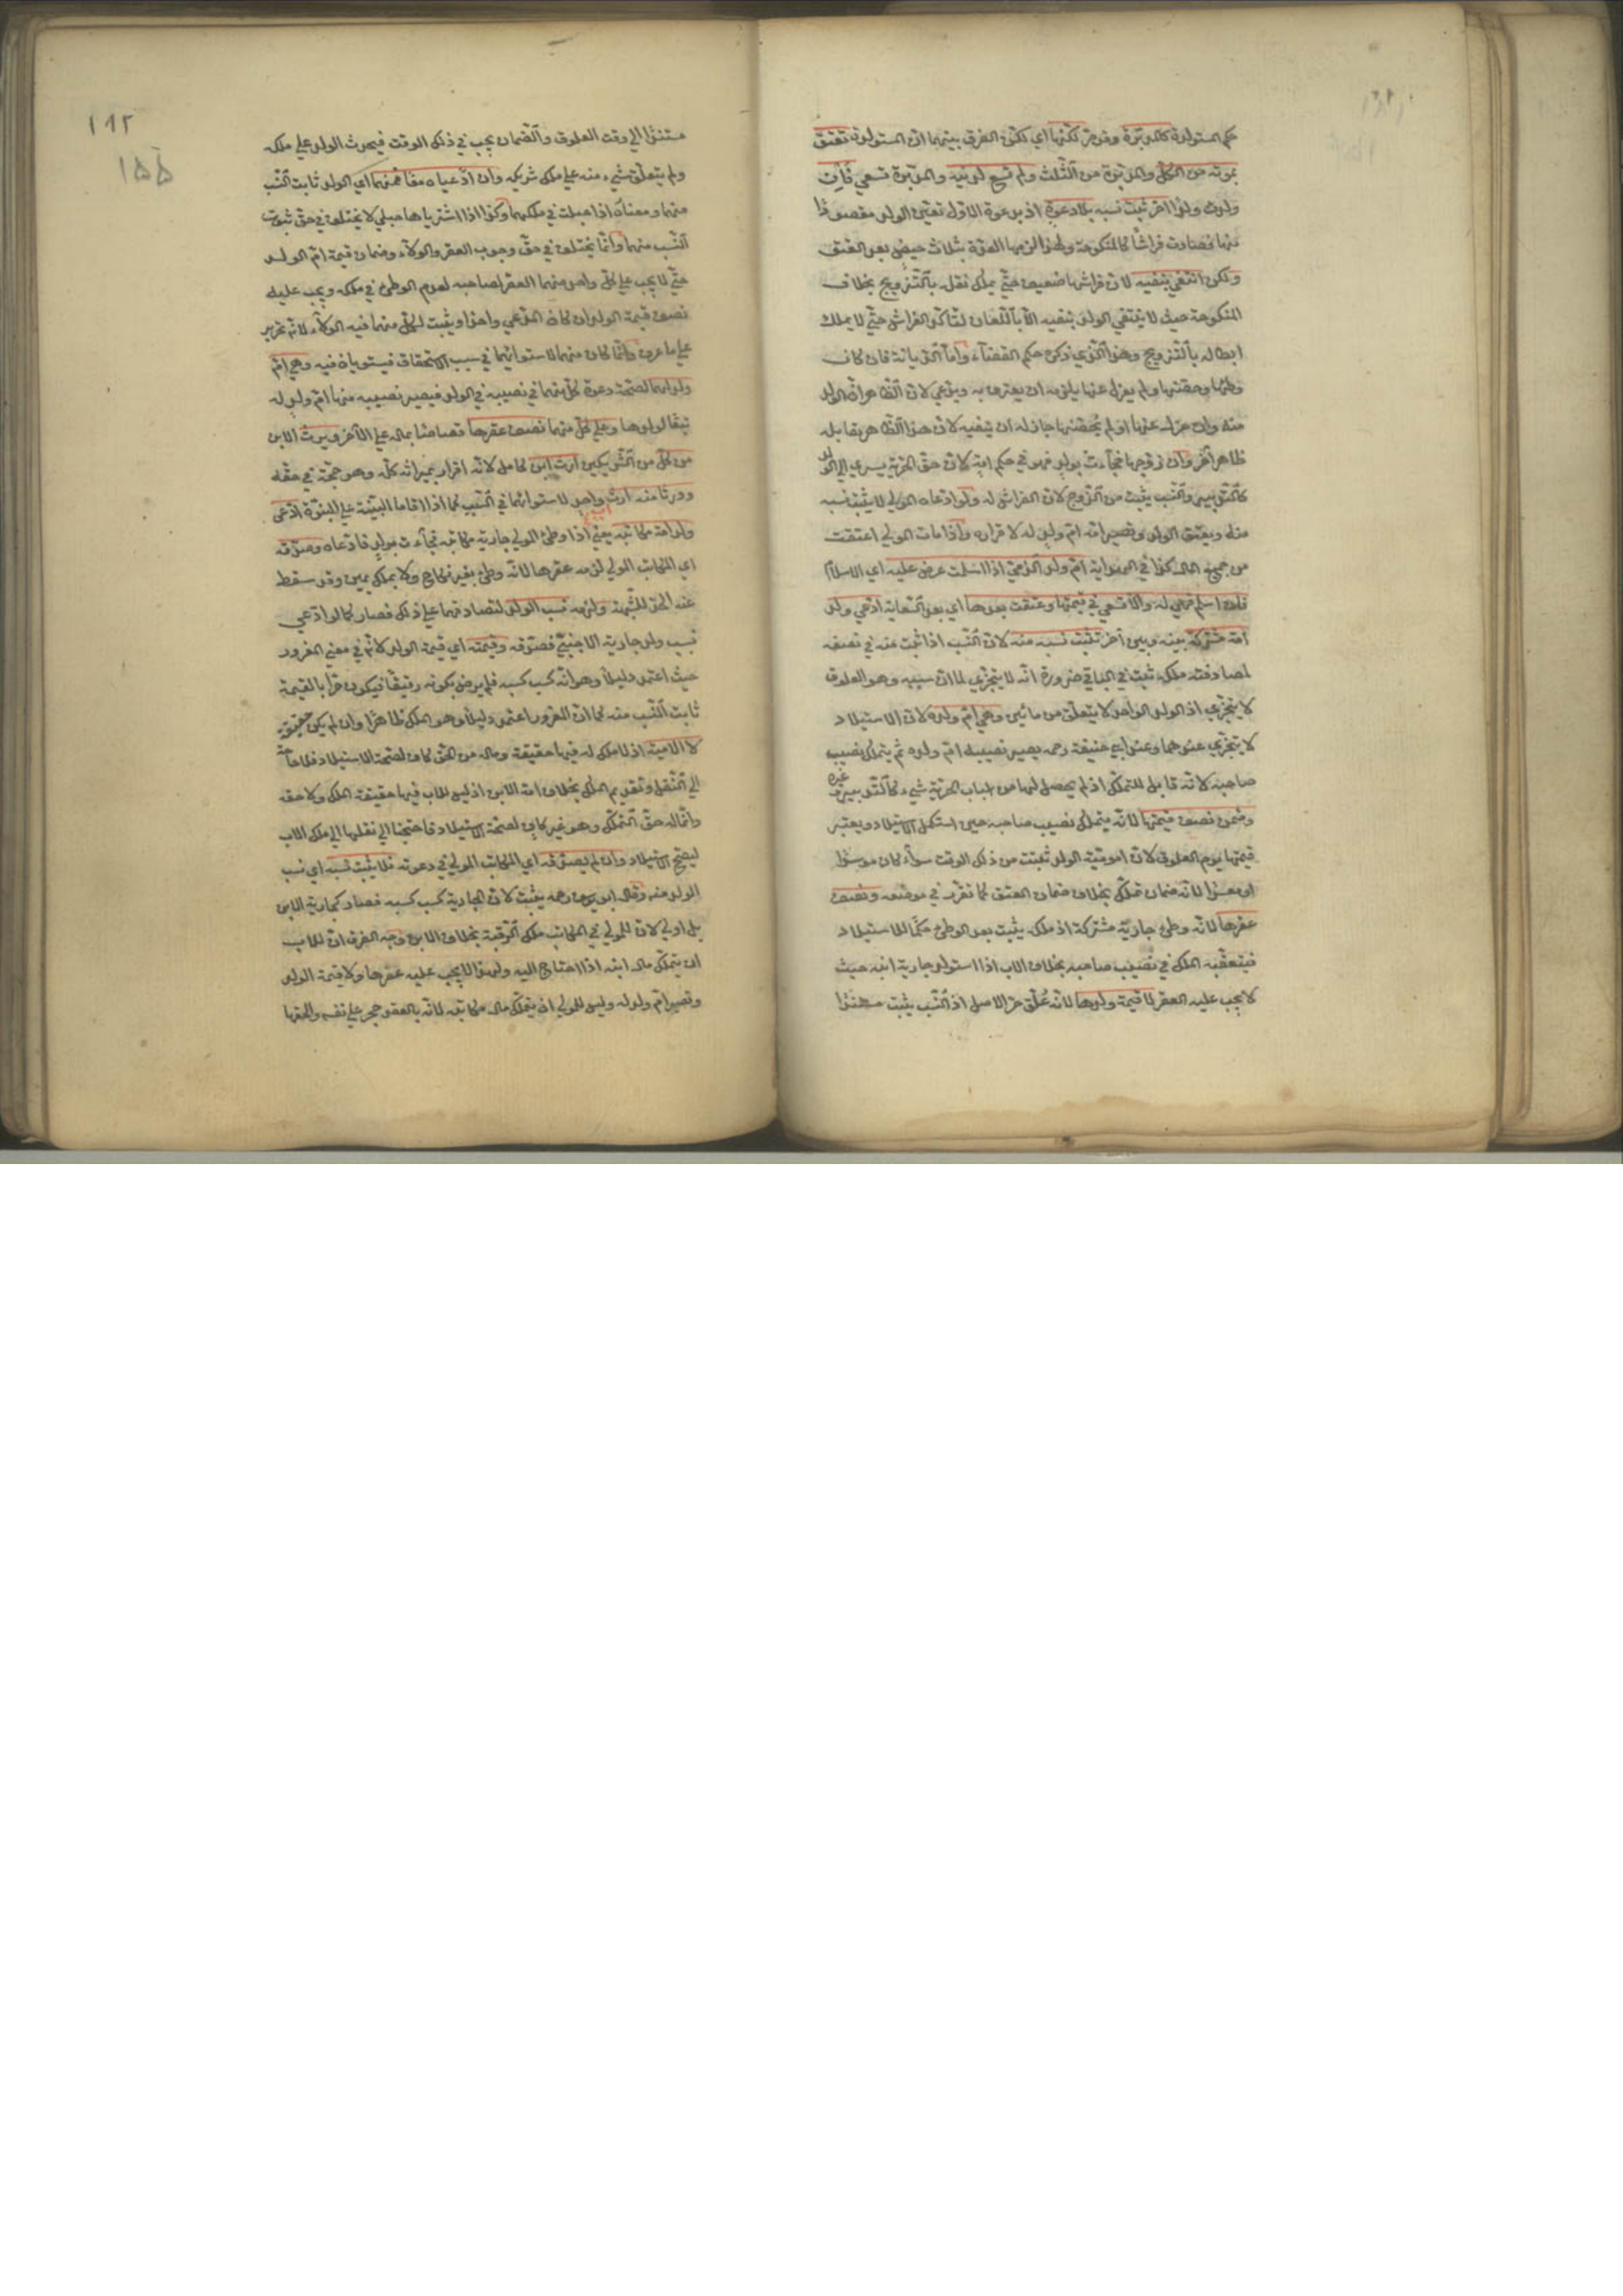 حكم المستولدة كالمدبّرة وقد مرّ لكنّها اي لكنّ الفرق بينهما انّ المستولدة تعتق
بموته من الكلّ والمدبّرة من الثّلث ولم تسع لدينه والمدبّرة تسعي فان
ولدت ولدًا اخر ثبت نسبه بلا دعوةٍ اذ بدعوة الاوّل تعيّن الولد مقصودًا
منها فصارت فراشًا كالمنكوحة ولهذا لزمها العدّة بثلاث حيض بعد العتق
ولكن انتفي بنفيه لانّ فراشها ضعيف حتّي يملك نقله بالتّزويج بخلاف
المنكوحة حيث لا ينتفي الولد بنفيه الّا باللّعان لتأكّد الفراش حتّي لا يملك
ابطاله بالتّزويج وهذا الّذي ذكر حكم القضآء وامّا الدّيانة فان كان
وطئها وحصّنها ولم يعزل عنها يلزمه ان يعترف به ويدّعي لانّ الظّاهر انّ الولد
منه وان عزل عنها او لم يحصّنها جاز له ان ينفيه لانّ هذا الظّاهر يقابله
ظاهر آخر وان زوّجها فجآءت بولدٍ فهو في حكم امّه لانّ حقّ الحرّيّة يسري الي الولد
كالتّدبير والنّسب يثبت من الزّوج لانّ الفراش له ولو ادّعاه المولي لا يثبت نسبه
منه ويعتق الولد وتصير امّه امّ ولدٍ له لاقراره واذا مات المولي اعتقت
من جميع المال كذا في الهداية امّ ولد الذّمّيّ اذا اسلمت عرض عليه اي الاسلام
فان اسلم فهي له والّا تسعي في قيمتها وعتقت بعدها اي بعد السّعاية ادّعي ولد
امة مشتركة بينه وبين آخر تثبت نسبه منه لانّ النّسب اذا ثبت منه في نصفه
لمصادفته ملكه ثبت في الباقي ضرورة انّه لا يتجزّي لما انّ سببه وهو العلوق
لا يتجزّي اذ الولد الواحد لا يتعلّق من مائين وهي امّ ولده لانّ الاستيلاد
لا يتجزّي عندهما وعند ابي حنيفة رحمه يصير نصيبه امّ ولده ثم يتملّك نصيب
صاحبه لانّه قابل للتملّك اذ لم يحصل لها من اسباب الحرّيّة شيء كالتّدبير وغيره
وضمن نصف قيمتها لانّه يتملّك نصيب صاحبه حين استكمل الاستيلاد ويعتبر
قيمتها يوم العلوق لانّ اموميّة الولد ثبتت من ذلك الوقت سوآء كان موسرًا
او معسرًا لانّه ضمان تملّك بخلاف ضمان العتق كما تقرّر في موضعه ونصف
عقرها لانّه وطئ جارية مشتركة اذ ملكه يثبت بعد الوطئ حكمًا للاستيلاد
فيتعقّبه الملك في نصيب صاحبه بخلاف الاب اذا استولد جارية ابنه حيث
لا يجب عليه العقر لا قيمة ولدها لانّه عُلّق حرّ الاصل اذ النّسب يثبت مستندًا
١٤٢
١۵۵
مستندًا الي وقت العلوق والضّمان يجب في ذلك الوقت فيحدث الولد علي ملكه
ولم يتعلّق شيء منه علي ملك شريكه وان ادّعياه معًا فهو منهما اي الولد ثابت النّسب
منهما ومعناه اذا حبلت في ملكهما وكذا اذا اشترياها حبلي لا يختلف في حقّ ثبوت
النّسب منهما وانّما يختلف في حقّ وجوب العقر والولآء وضمان قيمة امّ الولد
حتّي لا يجب علي كلّ واحد منهما العقر لصاحبه لعدم الوطئ في ملكه ويجب عليه
نصف قيمة الولد ان كان المدّعي واحدًا ويثبت لكلّ منهما فيه الولآء لانّه تحرير
علي ما عرف وانّما كان منهما لاستوائهما في سبب الاستحقاق فيستويان فيه وهي امّ
ولد لهما لصحّة دعوة كلّ منهما في نصيبه في الولد فيصير نصيبه منها امّ ولدٍ له
تبعًا لولدها وعلي كلّ منهما نصف عقرها قصاصًا بماله علي الآخر ويرث الابن
من كلّ من الشّريكين ارث ابن كامل لانّه اقرار بميراثه كلّه وهو حجّة في حقّه
وورثا منه ارث واحد لاستوائهما في السّبب كما اذا اقاما البيّنة علي البنوّة ادّعي
ولد امة مكاتبه يعني اذا وطئ المولي جارية مكاتبه فجآءت بولدٍ فادّعاه وصدّقه
اي المكاتب المولي لزمه عقرها لانّه وطئ بغير نكاح ولا بملك يمين وقد سقط
عنه الحدّ للشّبهة ولزمه نسب الولد لتصادقهما علي ذلك فصار كما لو ادّعي
نسب ولد جارية الاجنبيّ فصدّقه وقيمته اي قيمة الولد لانّه في معني المغرور
حيث اعتمد دليلًا وهو انّه كسب كسبه فلم يرض بكونه رقيقًا فيكون حرًّا بالقيمة
ثابت النّسب منه كما انّ المغرور اعتمد دليلًا وهو الملك ظاهرًا وان لم يكن حقيقة
لا الاميّة اذ لا ملك له فيها حقيقة وماله من الحقّ كاف لصحّة الاستيلاد فلا حاجة
الي النّقل وتقديم الملك بخلاف امة الابن اذ ليس للاب فيها حقيقة الملك ولا حقّه
وانّما له حقّ التّملّك وهو غير كافٍ لصحّة الاستيلاد فاحتجنا الي نقلها الي ملك الاب
ليصحّ الاستيلاد وان لم يصدّقه اي المكاتب المولي في دعوته فلا يثبت نسبه اي نسب
الولد منه وقال ابو يوسف رحمه يثبت لانّ الجارية كسب كسبه فصار كجارية الابن
بل اولي لانّ للمولي في المكاتب ملك الرّقبة بخلاف الابن وجه الفرق انّ للاب
ان يتملّك مال ابنه اذا احتاج اليه ولهذا لا يجب عليه عقرها ولا قيمة الولد
وتصير امّ ولد له وليس للمولي ان يتملّك مال مكاتبه لانّه بالعقد حجر علي نفسه